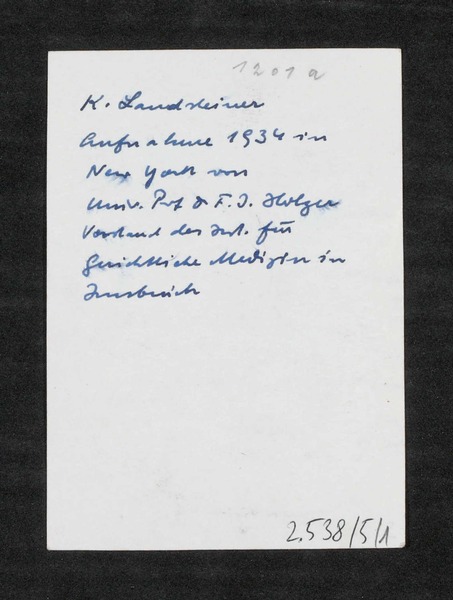 1201a
K. Landsteiner
Aufnahme 1934 in
New York von
Univ. Prof Dr F. J. Holzer
Vorstand des Inst. für
gerichtliche Medizin in
Innsbruck
2.538/5/1